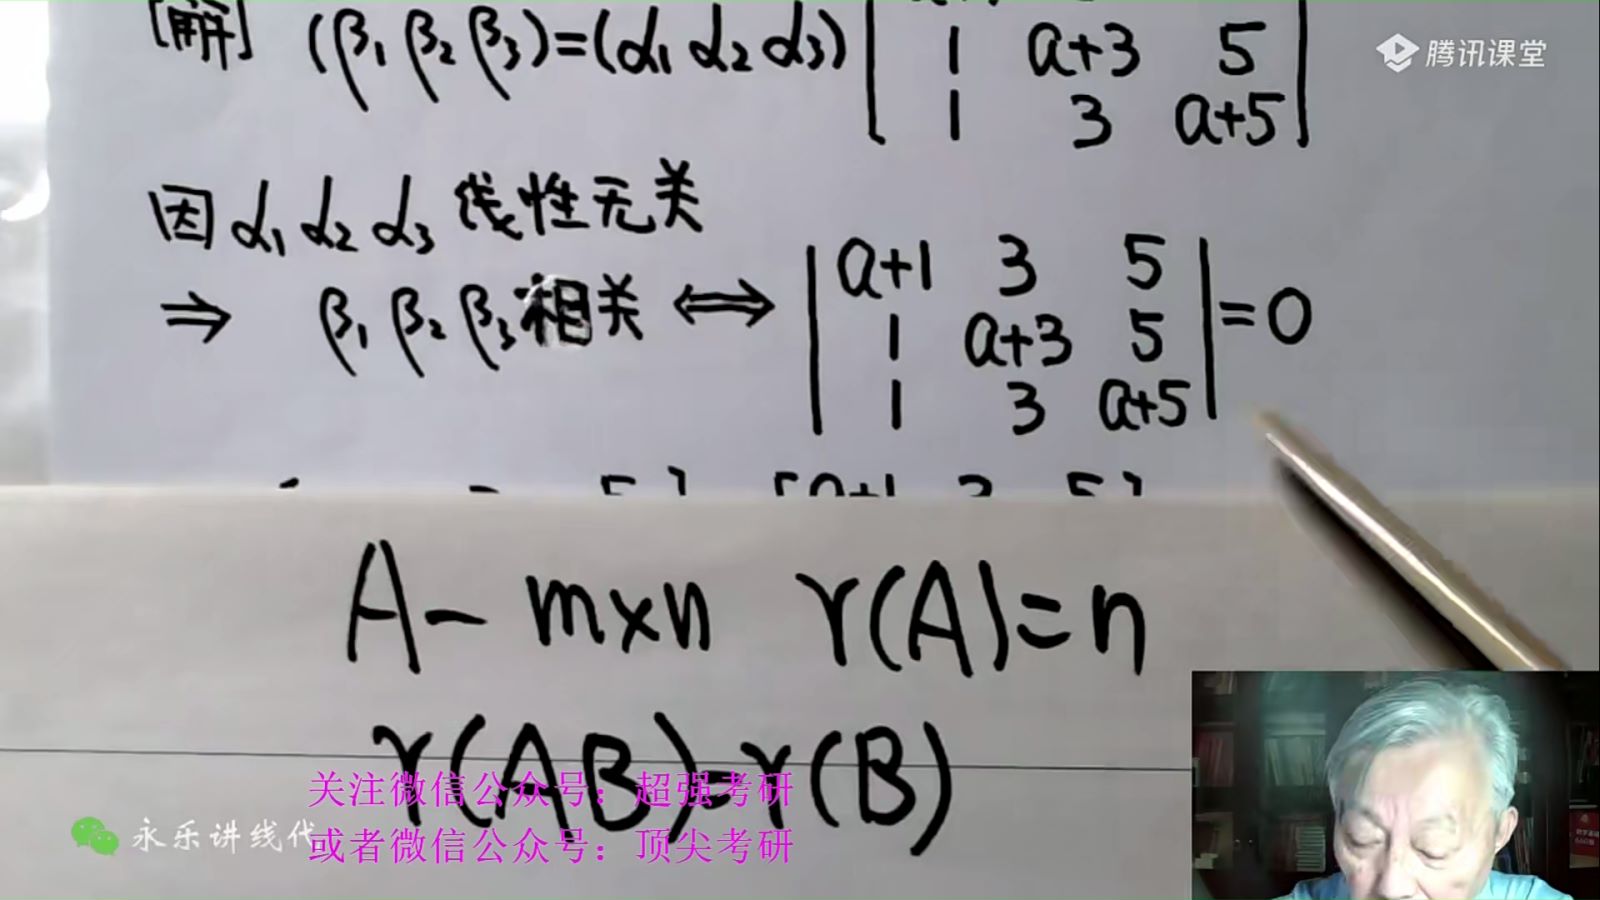 [解] (β₁ β₂ β₃)=(α₁ α₂ α₃)
1 a+3 5
1 3 a+5
腾讯课堂
因 α₁ α₂ α₃ 线性无关
⇒ β₁ β₂ β₃ 相关 ⟺
a+1 3 5
1 a+3 5 =0
1 3 a+5
A- m×n r(A)=n
r(AB)=r(B)
关注微信公众号：超强考研
永乐讲线代
或者微信公众号：顶尖考研